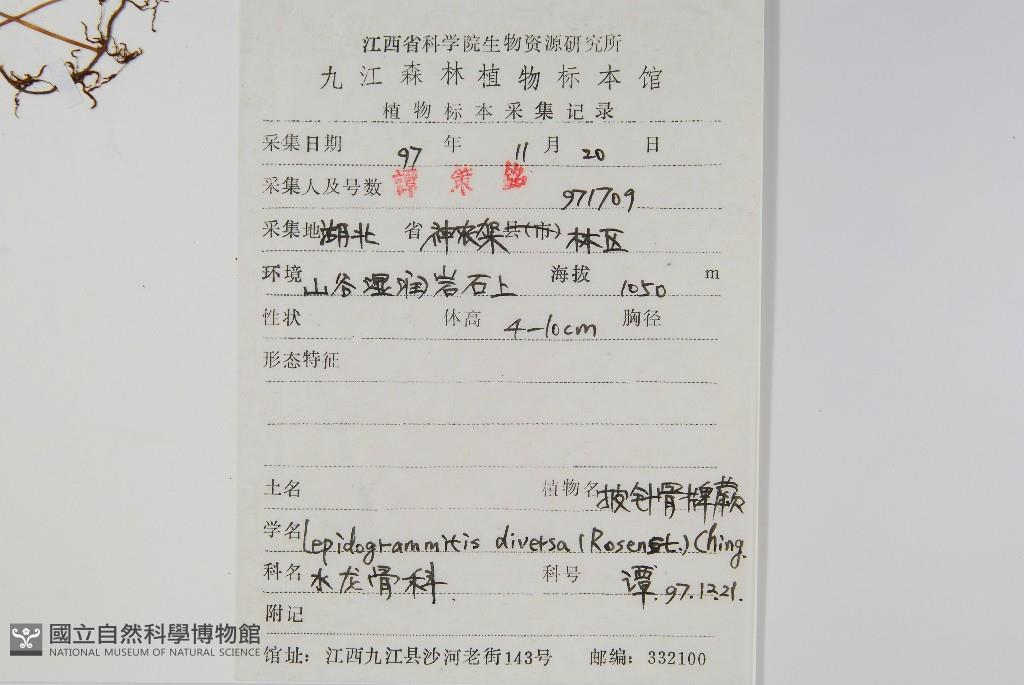 江西省科学院生物资源研究所
九江森林植物标本馆
植物标本采集记录
采集日期 97 年 11 月 20 日
采集人及号数 譚策铭 971709
采集地湖北 省神农架县(市)林区
环境山谷湿润岩石上 海拔 1050 m
性状 体高 4-10cm 胸径
形态特征
土名 植物名披针骨牌蕨
学名Lepidogrammitis diversa (Rosenst.) Ching
科名水龙骨科 科号 谭.97.12.21.
附记
馆址：江西九江县沙河老街143号 邮编：332100
國立自然科學博物館
NATIONAL MUSEUM OF NATURAL SCIENCE